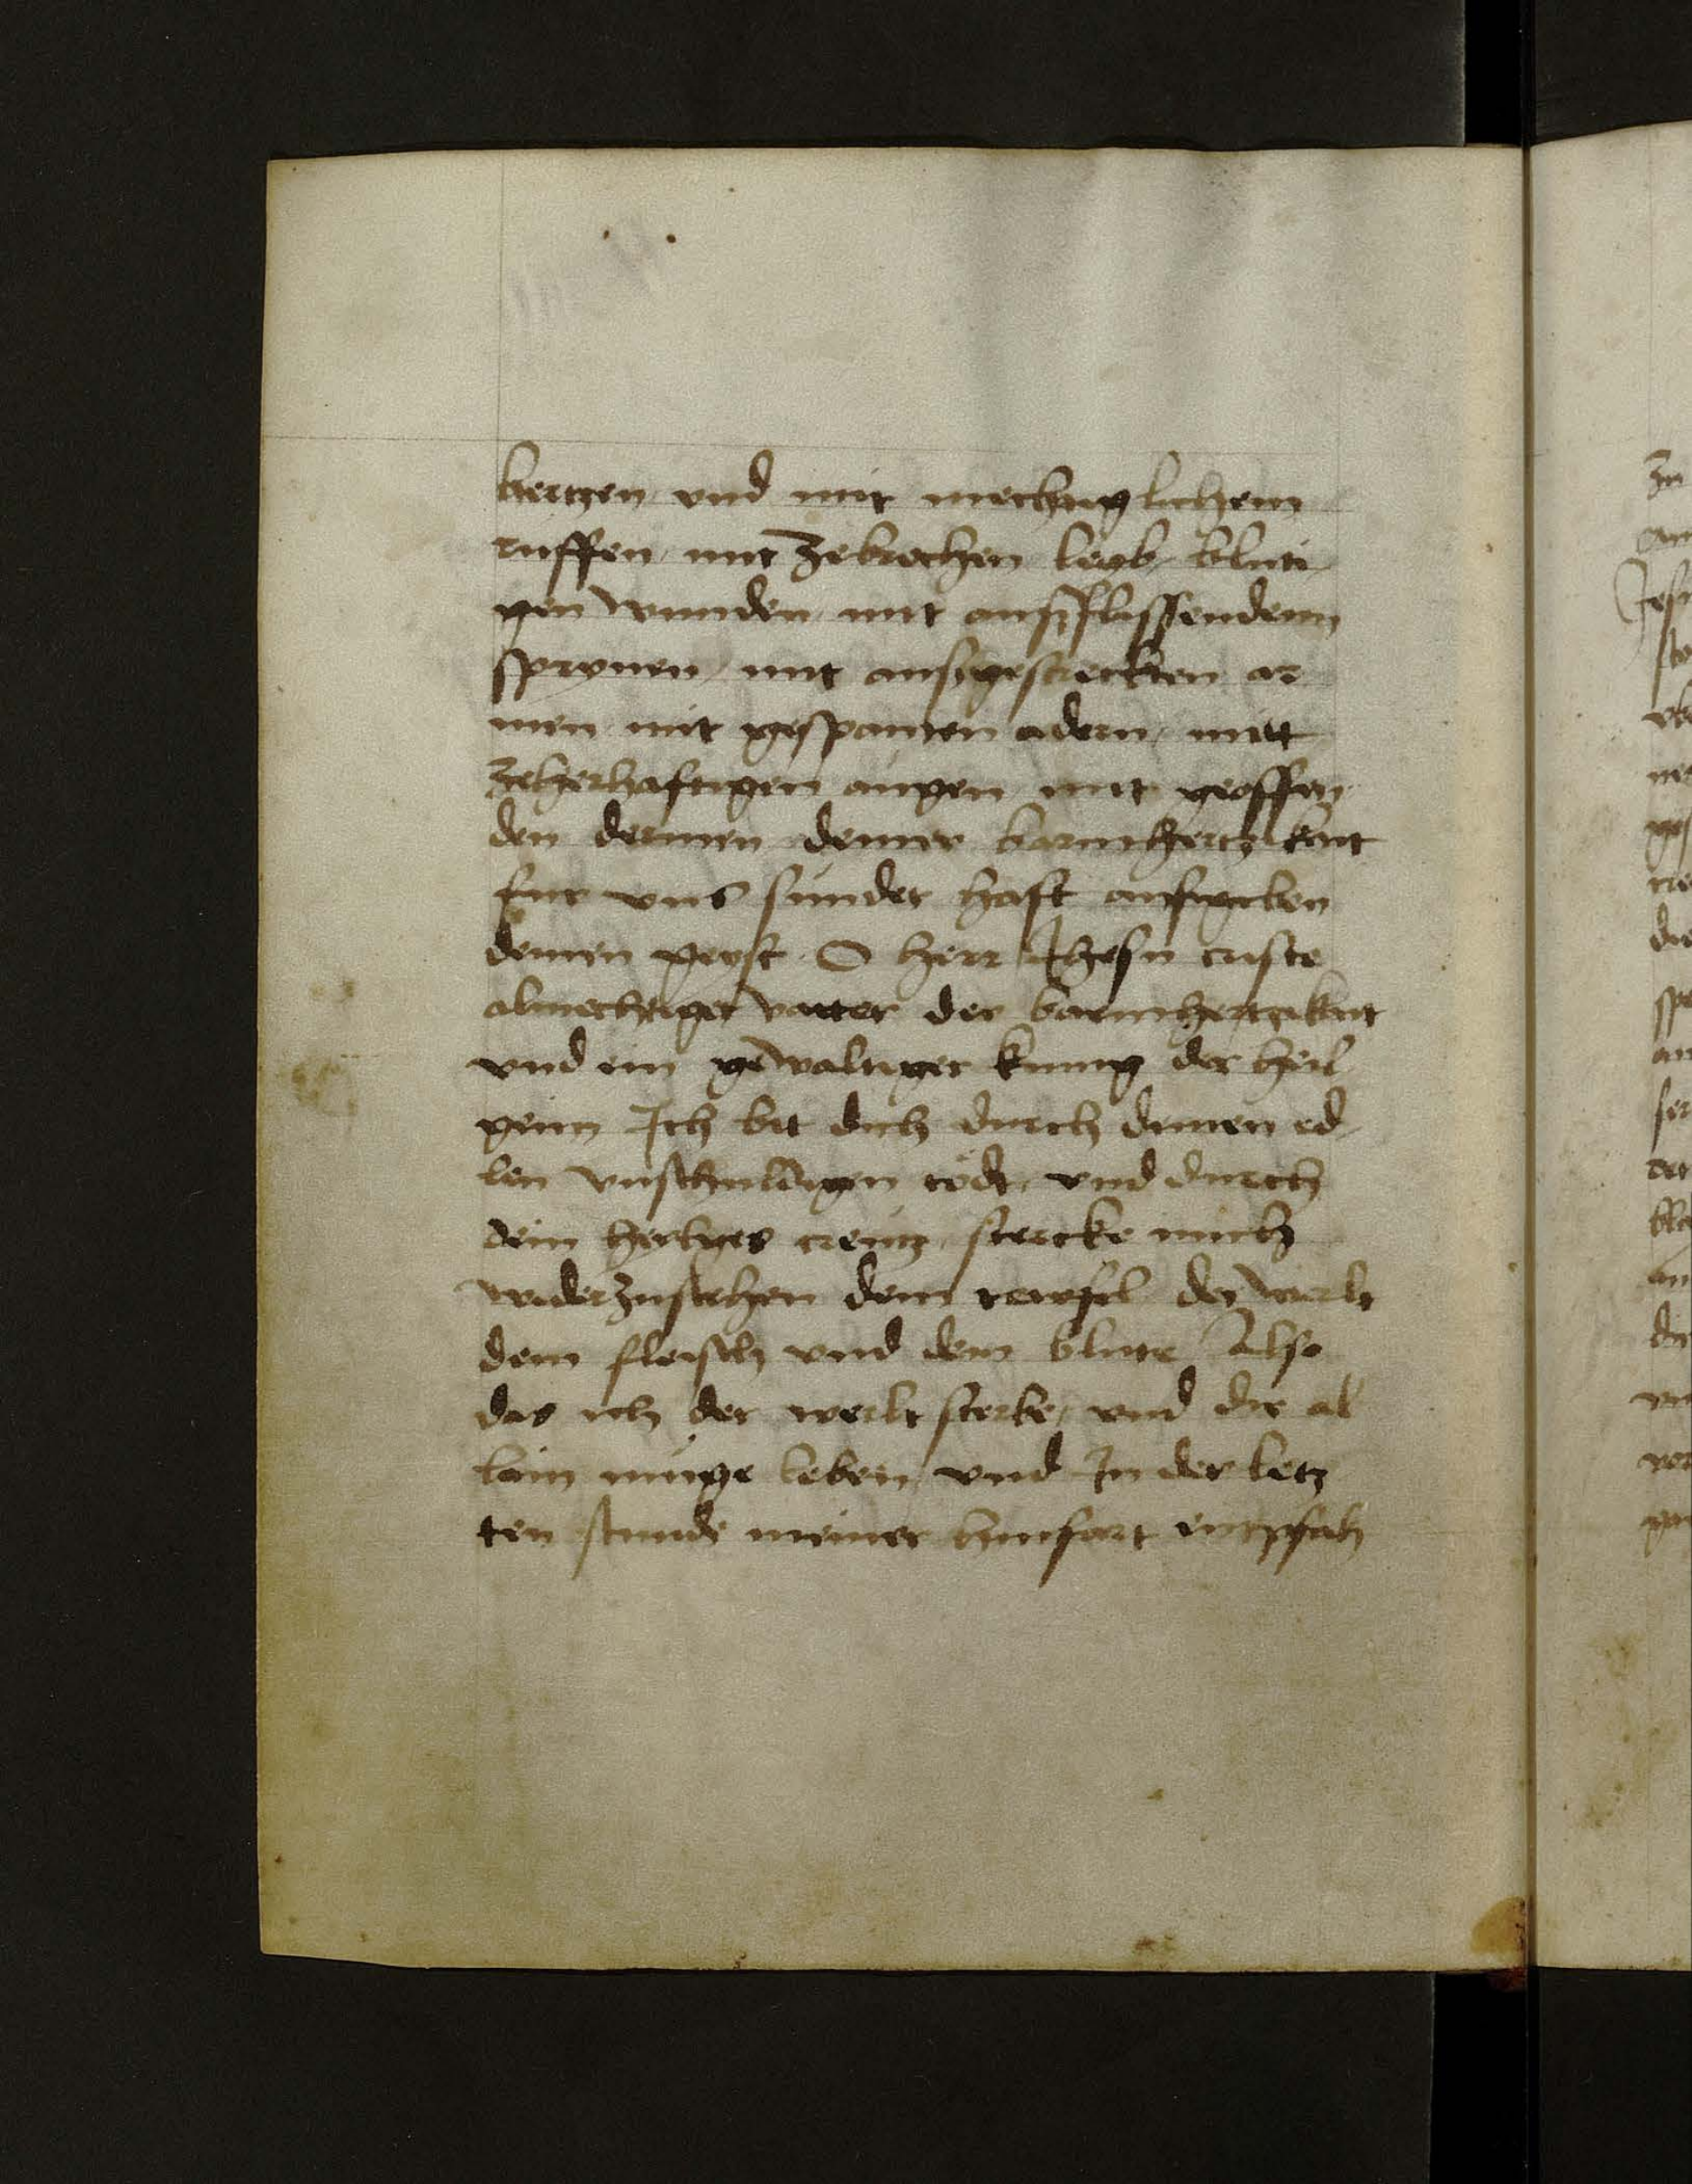 hertzen vnd mit mechtiglichem
ruffen mit zebrochen leyb bluti
gen wunden mit ausflissendem
mit ausgestreckten ar
men mit gespanten adern mitt
zeherhaftigen augen mit geoffen
den dermen deiner barmhertzikait
fur vns sunder hast aufgeben
deinen geyst O herr Jhesu criste
almechtiger vatter der barmhertzikait
vnd ein gewaltiger kunig der heil
genn Jch bit dich durch deinen ed
len vnschuldigen tode vnd durch
dein heyliges creutz stercke mich
widerzustehen dem tewfel der werlt
dem fleisch vnd dem blute Also
das ich der werlt sterbe vnd dir al
lain muge leben vnd Jn der letz
ten stunde meiner hinfart entpfah
Jesu